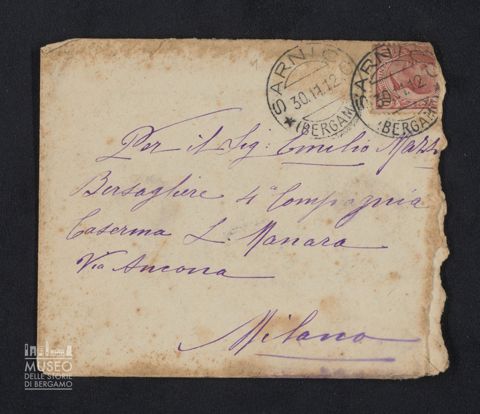 SARNICO
30.11.12
★(BERGAMO)
SARNICO
30.11.12
(BERGAM
Per il Sig: Emilio Mazz
Bersagliere 4ª Compagnia
Caserma L. Manara
Via Ancona
Milano
MUSEO
DELLE STORIE
DI BERGAMO